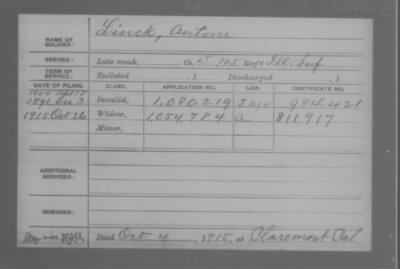 NAME OF SOLDIER: Linck, Antoni
SERVICE: Late rank, Co. D 105 Reg't Ill. Inf.
TERM OF SERVICE: Enlisted , 1 Discharged , 1
DATE OF FILING. CLASS. APPLICATION NO. LAW. CERTIFICATE NO.
1891 Dec 3 Invalid, 1,080,219 984,421
1915 Oct 26 Widow, 1,054,784 a 811,917
Minor,
ADDITIONAL SERVICES:
REMARKS:
Died Oct 4, 1915, at Claremont Cal